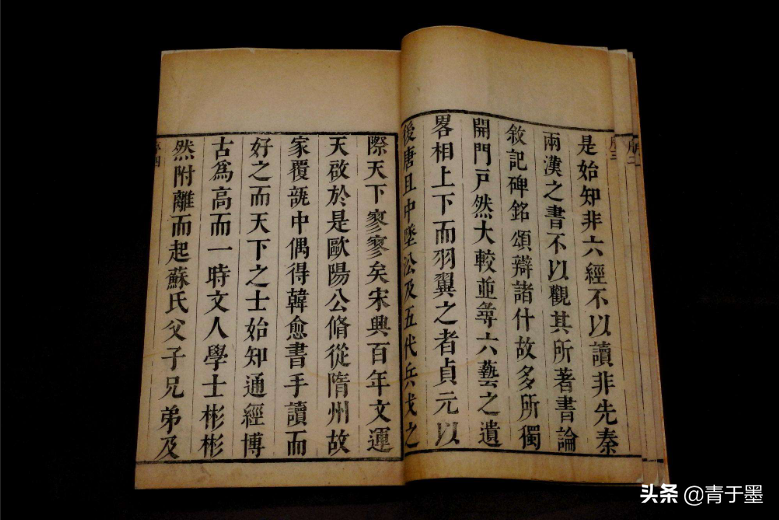 是始知非六經不以讀非先秦
兩漢之書不以觀其所著書論
敘記碑銘頌辯諸什故多所獨
開門戶然大較並尋六藝之遺
畧相上下而羽翼之者貞元以
後唐且中墜沿及五代兵戈之
際天下寥寥矣宋興百年文運
天啟於是歐陽公脩從隋州故
家覆瓿中偶得韓愈書手讀而
好之而天下之士始知通經博
古爲高而一時文人學士彬彬
然附離而起蘇氏父子兄弟及
序二
序三
序四
头条 @青于墨